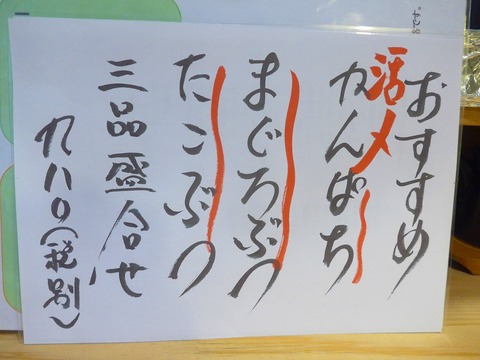 おすすめ
活〆
かんぱち
まぐろぶつ
たこぶつ
三品盛合せ
九八〇(税別)